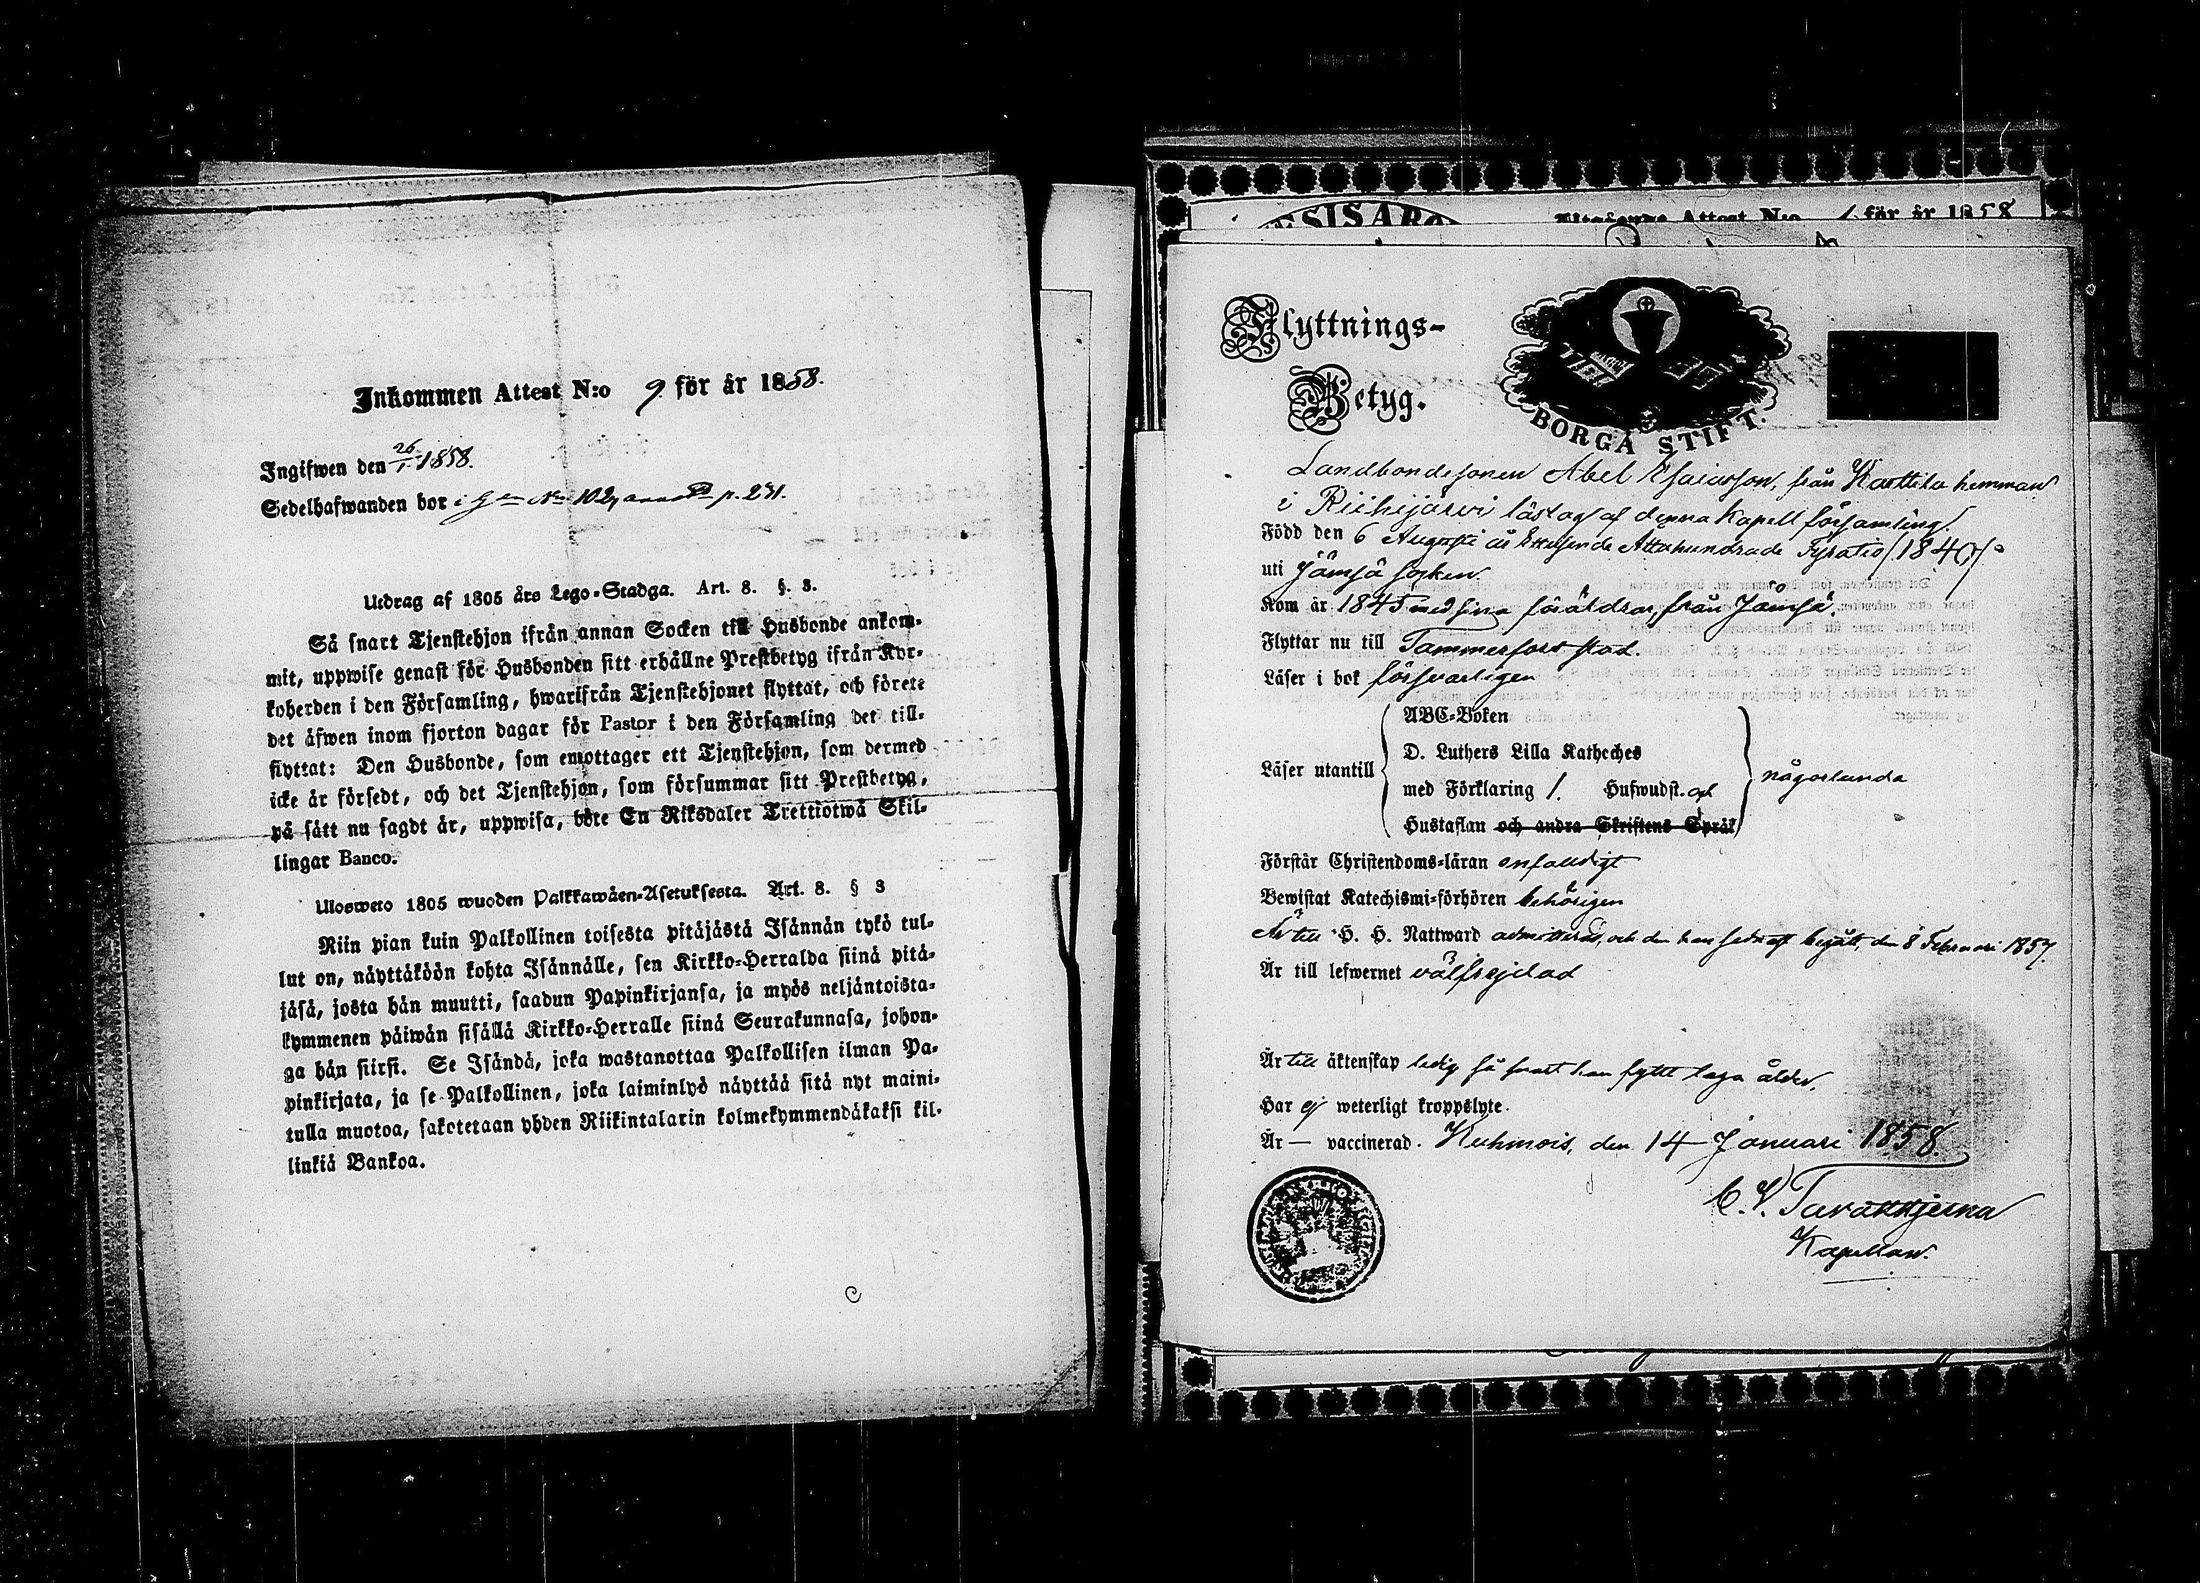 Inkommen Attest N:o 9. för år 1858.
Ingifwen den 26/1 1858.
Sedelhafwanden bor i G N 102 p. 231.
Utdrag af 1805 års Lego-Stadga. Art. 8. §. 3.
Så snart Tjenstehjon ifrån annan Socken till Husbonde ankom-
mit, uppwise genast för Husbonden sitt erhållne Prestbetyg ifrån Kyr-
koherden i den Församling, hwarifrån Tjenstehjonet flyttat, och förete
det äfwen inom fjorton dagar för Pastor i den Församling det till-
flyttat: Den Husbonde, som emottager ett Tjenstehjon, som dermed
icke är försedt, och det Tjenstehjon, som försummar sitt Prestbetyg,
på sätt nu sagdt är, uppwisa, böte En Riksdaler Trettiotwå Skil-
lingar Banco.
Ulosweto 1805 wuoden Palkkawäen-Asetuksesta. Art. 8. § 3
Niin pian kuin Palkollinen toisesta pitäjästä Isännän tykö tul-
lut on, näyttäköön kohta Isännälle, sen Kirkko-Herralda siinä pitä-
jäsä, josta hän muutti, saadun Papinkirjansa, ja myös neljäntoista-
kymmenen päiwän sisällä Kirkko-Herralle siinä Seurakunnasa, johon-
ga hän siirsi. Se Isändä, joka wastanottaa Palkollisen ilman Pa-
pinkirjata, ja se Palkollinen, joka laiminlyö näyttää sitä nyt maini-
tulla muotoa, sakotetaan yhden Riikintalarin kolmekymmendäkaksi kil-
linkiä Bankoa.
Attest N:o 1 för år 1858
Flyttnings-
Betyg.
BORGÅ STIFT.
Landbondesonen Abel Esaiasson, från Karttila hemman
i Riihijärvi låstag af denna Kapell församling.
Född den 6 Augusti år Ettusende Attahundrade Fyratio (1840)
uti Jämsä socken.
Kom år 1845 med sina föräldrar, från Jämsä.
Flyttar nu till Tammerfors stad.
Läser i bok försvarligen
Läser utantill
ABC-Boken
D. Luthers Lilla Katheches
med Förklaring 1. Hufwudst. och
Hustaflan och andra Skriftens Språk
någorlunda
Förstår Christendoms-läran enfaldigt
Bewistat Katechismi-förhören behörigen
Är till H. H. Nattward admitterad, och den han sednast begått, den 8 Februari 1857.
Är till lefwernet välfrejdad
Är till äktenskap ledig så snart han fyllt laga ålder.
Har ej weterligt kroppslyte.
Är — vaccinerad. Kuhmois, den 14 Januari 1858.
C. V. Tavaststjerna
Kapellan.